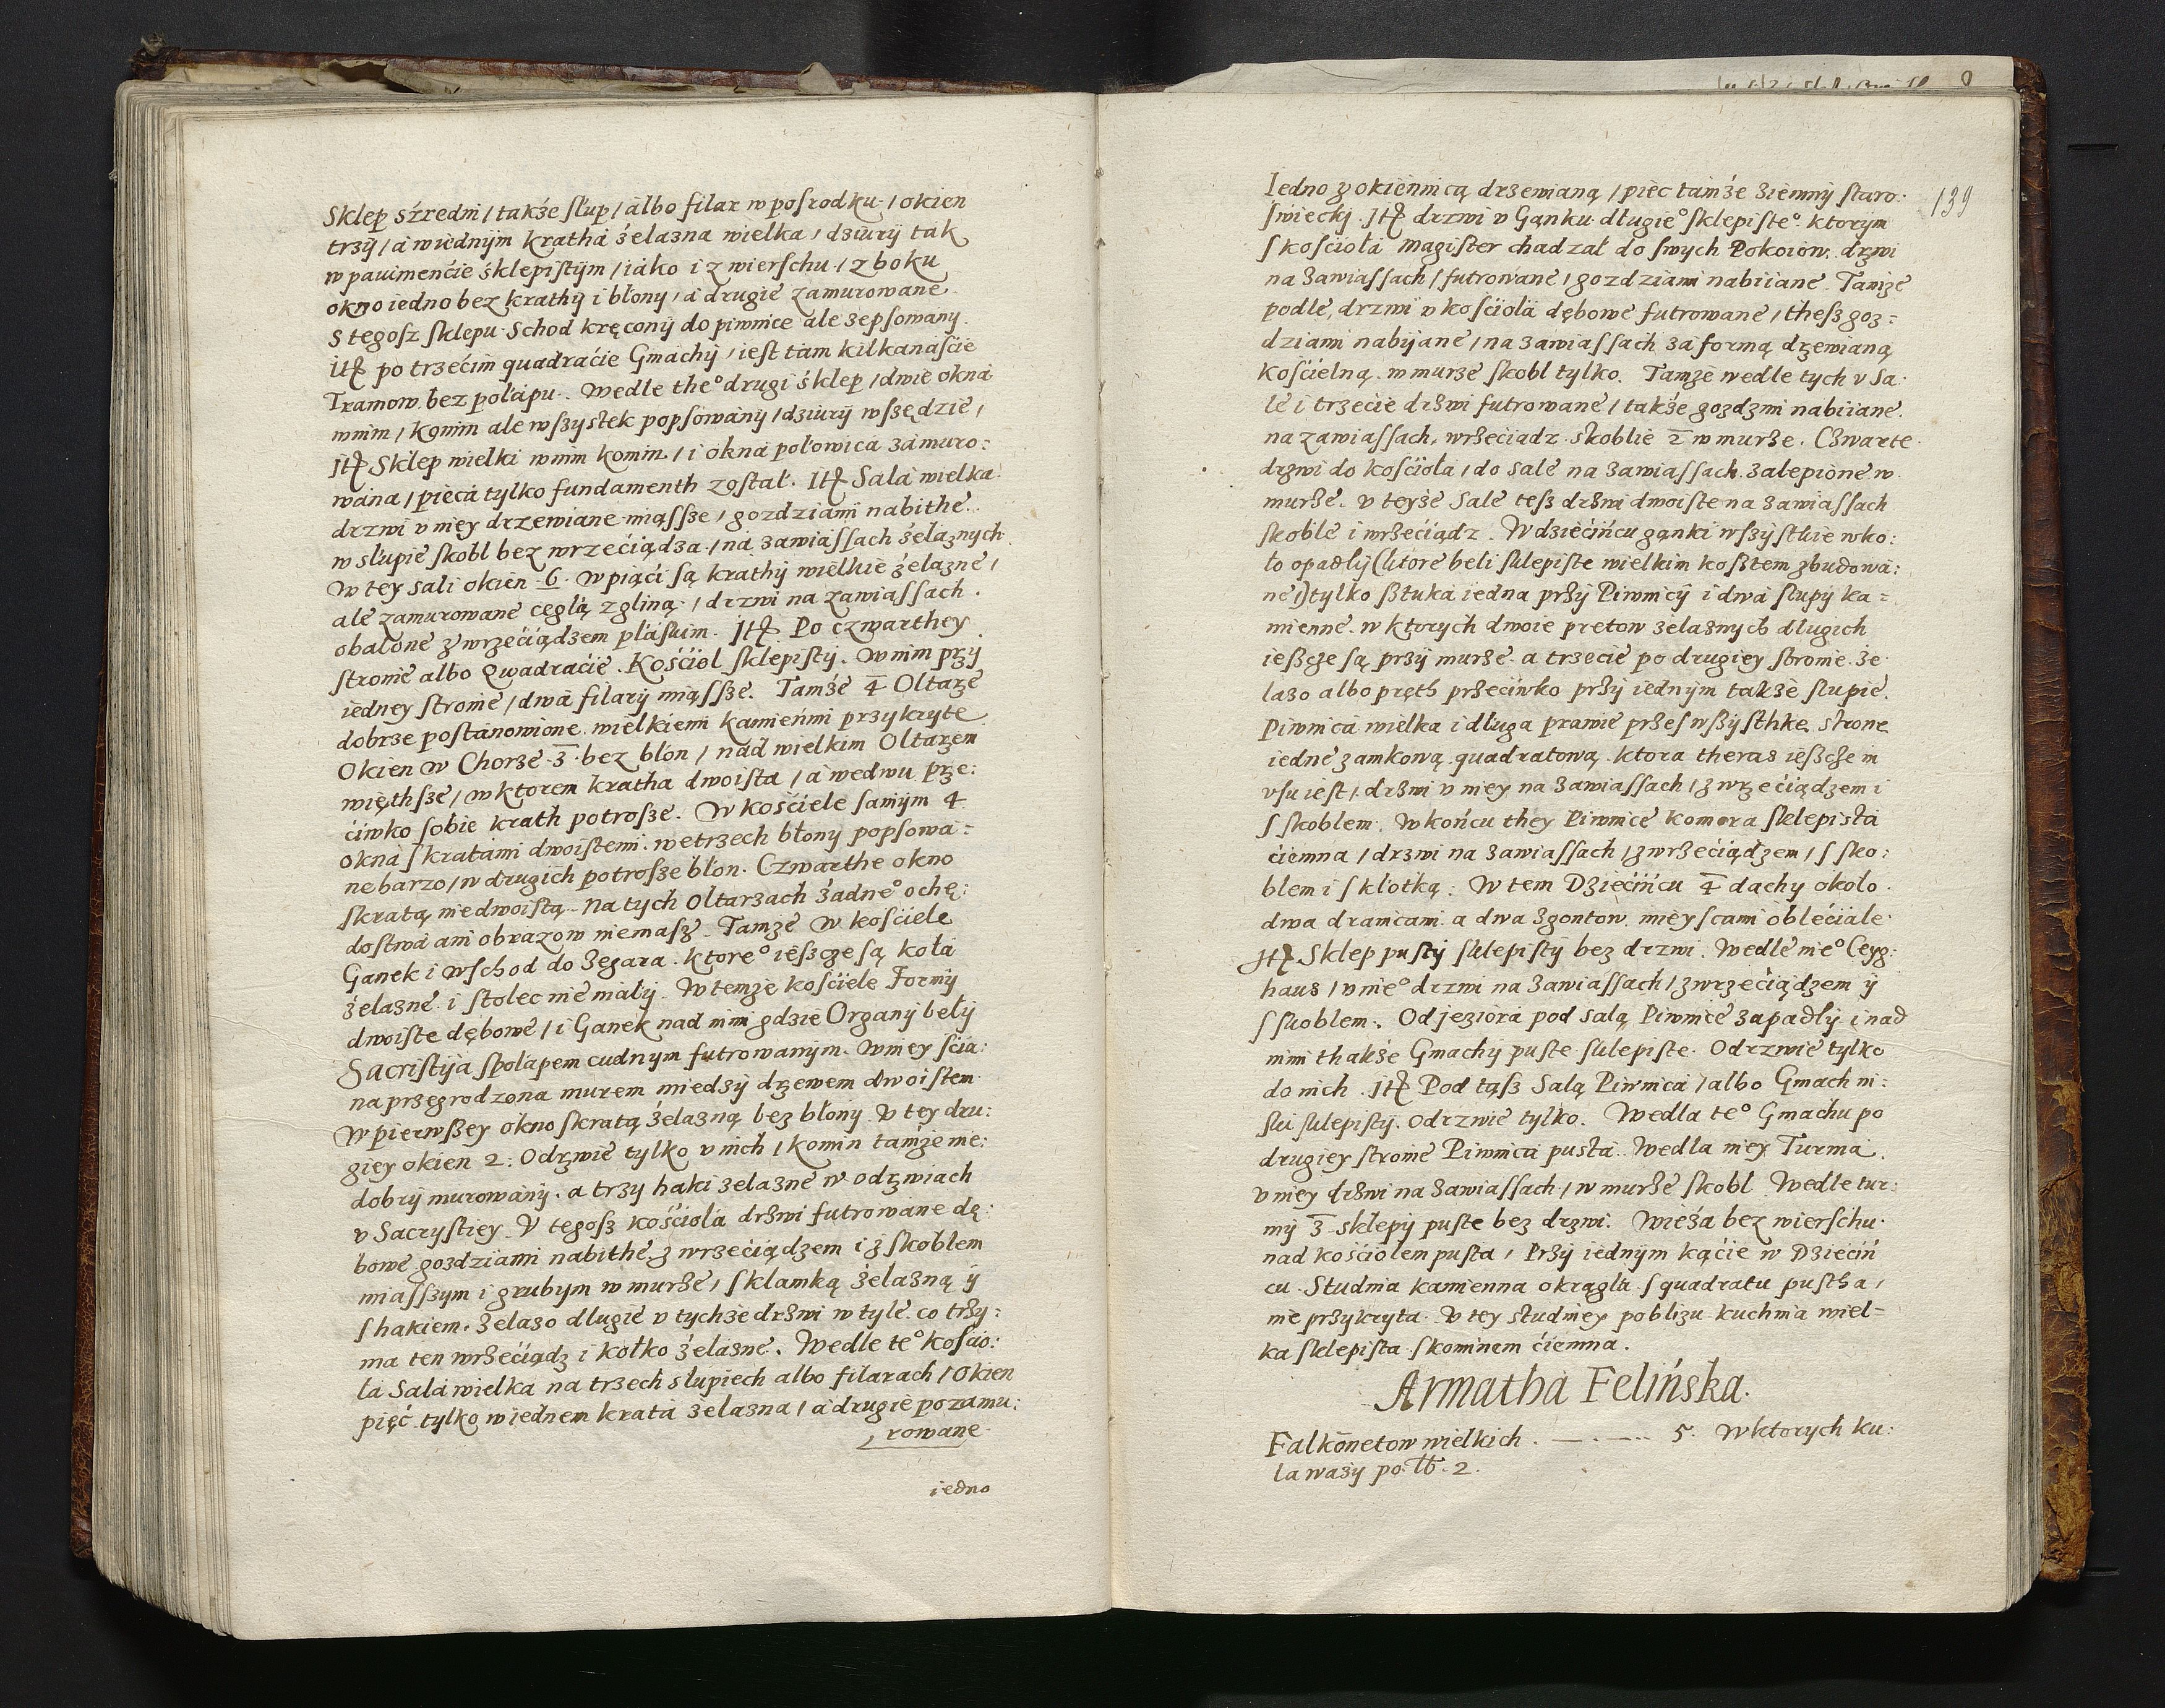 Sklep śrzedni / także słup / albo filar w pośrodku / okien
trzÿ / á wiednÿm krathá żelazna wielka / dziurÿ tak
w pauimenćie sklepistÿm / iáko i z wierschu / z boku
okno iedno bez krathÿ i błonÿ / á drugie zamurowane
S tegosz sklepu Schod kręconÿ do piwnice ále zepsowany.
Itȩ po trzećim quadraćie Gmachÿ / iest tám kilkanaśćie
Tramow bez połápu. Wedle the° drugi sklep / dwie okná
wnim / Komin ale wszystek popsowány / dziurÿ wszędzie /
Itȩ Sklep wielki wnim komin / i okná połowicá zámuro:
wána / piecá tylko fundamenth został. Itȩ Salá wielka
drzwi v niey drzewiane miąsze / gozdziami nabithe.
w słupie skobl bez wrzećiądza / ná zawiassach żelaznych
W tey sali okien 6. W piąći są krathÿ wielkie żelazne /
ale zamurowane cegłą z gliną / drzwi na zawiassach.
obalone z wrzećiądzem płáskim. Itȩ Po czwarthey
stronie albo Quadraćie Kośćioł sklepistÿ. W nim przÿ
iedney stronie / dwá filarÿ miąssze. Tamże 4 Ołtarze
dobrze postánowione wielkiemi kamieńmi przykryte
Okien w Chorze 3 bez błon / nád wielkim Ołtarzem
więthsze / w ktorem kratha dwoista / á wedwu prze:
ćiwko sobie krath potrosze. W kośćiele samÿm 4
okná s kratami dwoistemi. wetrzech błonÿ popsowá=
ne barzo / w drugich potrosze błon. Czwarthe okno
skratą niedwoistą. Na tych Ołtarzach żadne° ochę:
dostwá ani obrazow niemasz. Tamże w kośćiele
Ganek i wschod do Zegara ktore° ieszcze są kołá
żelazne i stolec nie máłÿ. W temże kośćiele Formÿ
dwoiste dębowe / i Ganek nad nimi gdzie Organÿ bełÿ
Sacristÿa społapem cudnym futrowanÿm. W niey śćiá:
na przegrodzona murem miedzÿ drzewem dwoistem
W pierwszey okno skratą żelazną bez błonÿ. V tey dru:
giey okien 2: Odrzwie tylko v nich / Komin tamże nie:
dobrÿ murowánÿ. a trzy haki żelazne w odrzwiach
v Sacrystiey. V tegosz kośćiołá drzwi futrowane dę:
bowe gozdziami nabithe z wrzećiądzem i z skoblem
miasszym i grubym w murze / s klamką żelazną ÿ
s hakiem. Żelazo długie v tychże drzwi w tyle co trzÿ:
ma ten wrzećiądz i kołko żelazne. Wedle te° kośćio:
łá Salá wielka na trzech słupiech albo filarach / Okien
pięć tylko wiednem kratá żelazna / á drugie pozamu:
rowane
iedno
139
Iedno z okiennicą drzewianą / piec támże ziemnÿ staro:
świeckÿ. Itȩ drzwi v Gąnku długie° sklepiste° ktorym
s kośćiołá Magister chadzał do swych Pokoiow. drzwi
na zawiassach / futrowáne / gozdziami nabiiane. Tamże
podle, drzwi v kośćiołá dębowe futrowane / thesz goz=
dziami nabÿane / na zawiassach za formą drzewianą
kośćielną. w murze skobl tylko. Tamże wedle tych v Sa:
le i trzećie drzwi futrowane / także gozdzmi nabiiane.
na zawiassach, wrzećiadz skoblie 2 w murze. Czwarte
drzwi do kośćiołá / do Sale na zawiassach zalepione w
murze. v teyże Sale tesz drzwi dwoiste na zawiassach
skoble i wrzećiądz. W dziećińcu gąnki wszÿstkie wko:
ło opadłÿ (ktore beli sklepiste wielkim kosztem zbudowá:
ne i) tylko sztuká iedna przÿ Piwnicÿ i dwá słupÿ ka=
mienne. w ktorych dwoie prętow żelaznych długich
ieszcze są przÿ murze. a trzecie po drugiey stronie. że
lazo albo pręth przećiwko przÿ iednÿm także słupie.
Piwnicá wielka i długa prawie przes wszÿsthke strone
iedne zamkową quadratową. ktora theras ieszcze w
vsu iest / drzwi v niey na zawiassach / z wrzećiądzem i
s skoblem. W końcu they Piwnice komora sklepistá
ćiemna / drzwi na zawiassach / z wrzećiądzem / s sko:
blem i s kłotką: W tem Dziećińcu 4 dachy około
dwa dranicami a dwa z gontow. mieyscami oblećiałe
Itȩ Sklep pustÿ sklepisty bez drzwi. Wedle nie° Ceyg:
haus / v nie° drzwi na zawiassach / z wrzećiądzem ÿ
s skoblem. Od jeziorá pod Salą Piwnice zapadłÿ i nad
nimi thakże Gmachÿ puste sklepiste. Odrzwie tylko
do nich. Itȩ Pod tąsz Salą Piwnicá / albo Gmach ni:
ski sklepistÿ. odrzwie tylko. Wedla te° Gmachu po
drugiey stronie Piwnicá pustá. Wedla niey Turmá.
v niey drzwi na zawiassach / w murze skobl. Wedle tur:
mÿ 3 sklepÿ puste bez drzwi. Wieżá bez wierschu
nad kośćiołem pusta / Przÿ iednÿm kąćie w Dziećiń
cu Studnia kamienna okrągła s quadratu pustha /
nie przykryta. V tey studniey poblizu kuchnia wiel=
ka sklepista skominem ćiemna.
Armatha Felińska.
Falkonetow wielkich. — . — 5. W ktorych ku:
la waży po ℔. 2.